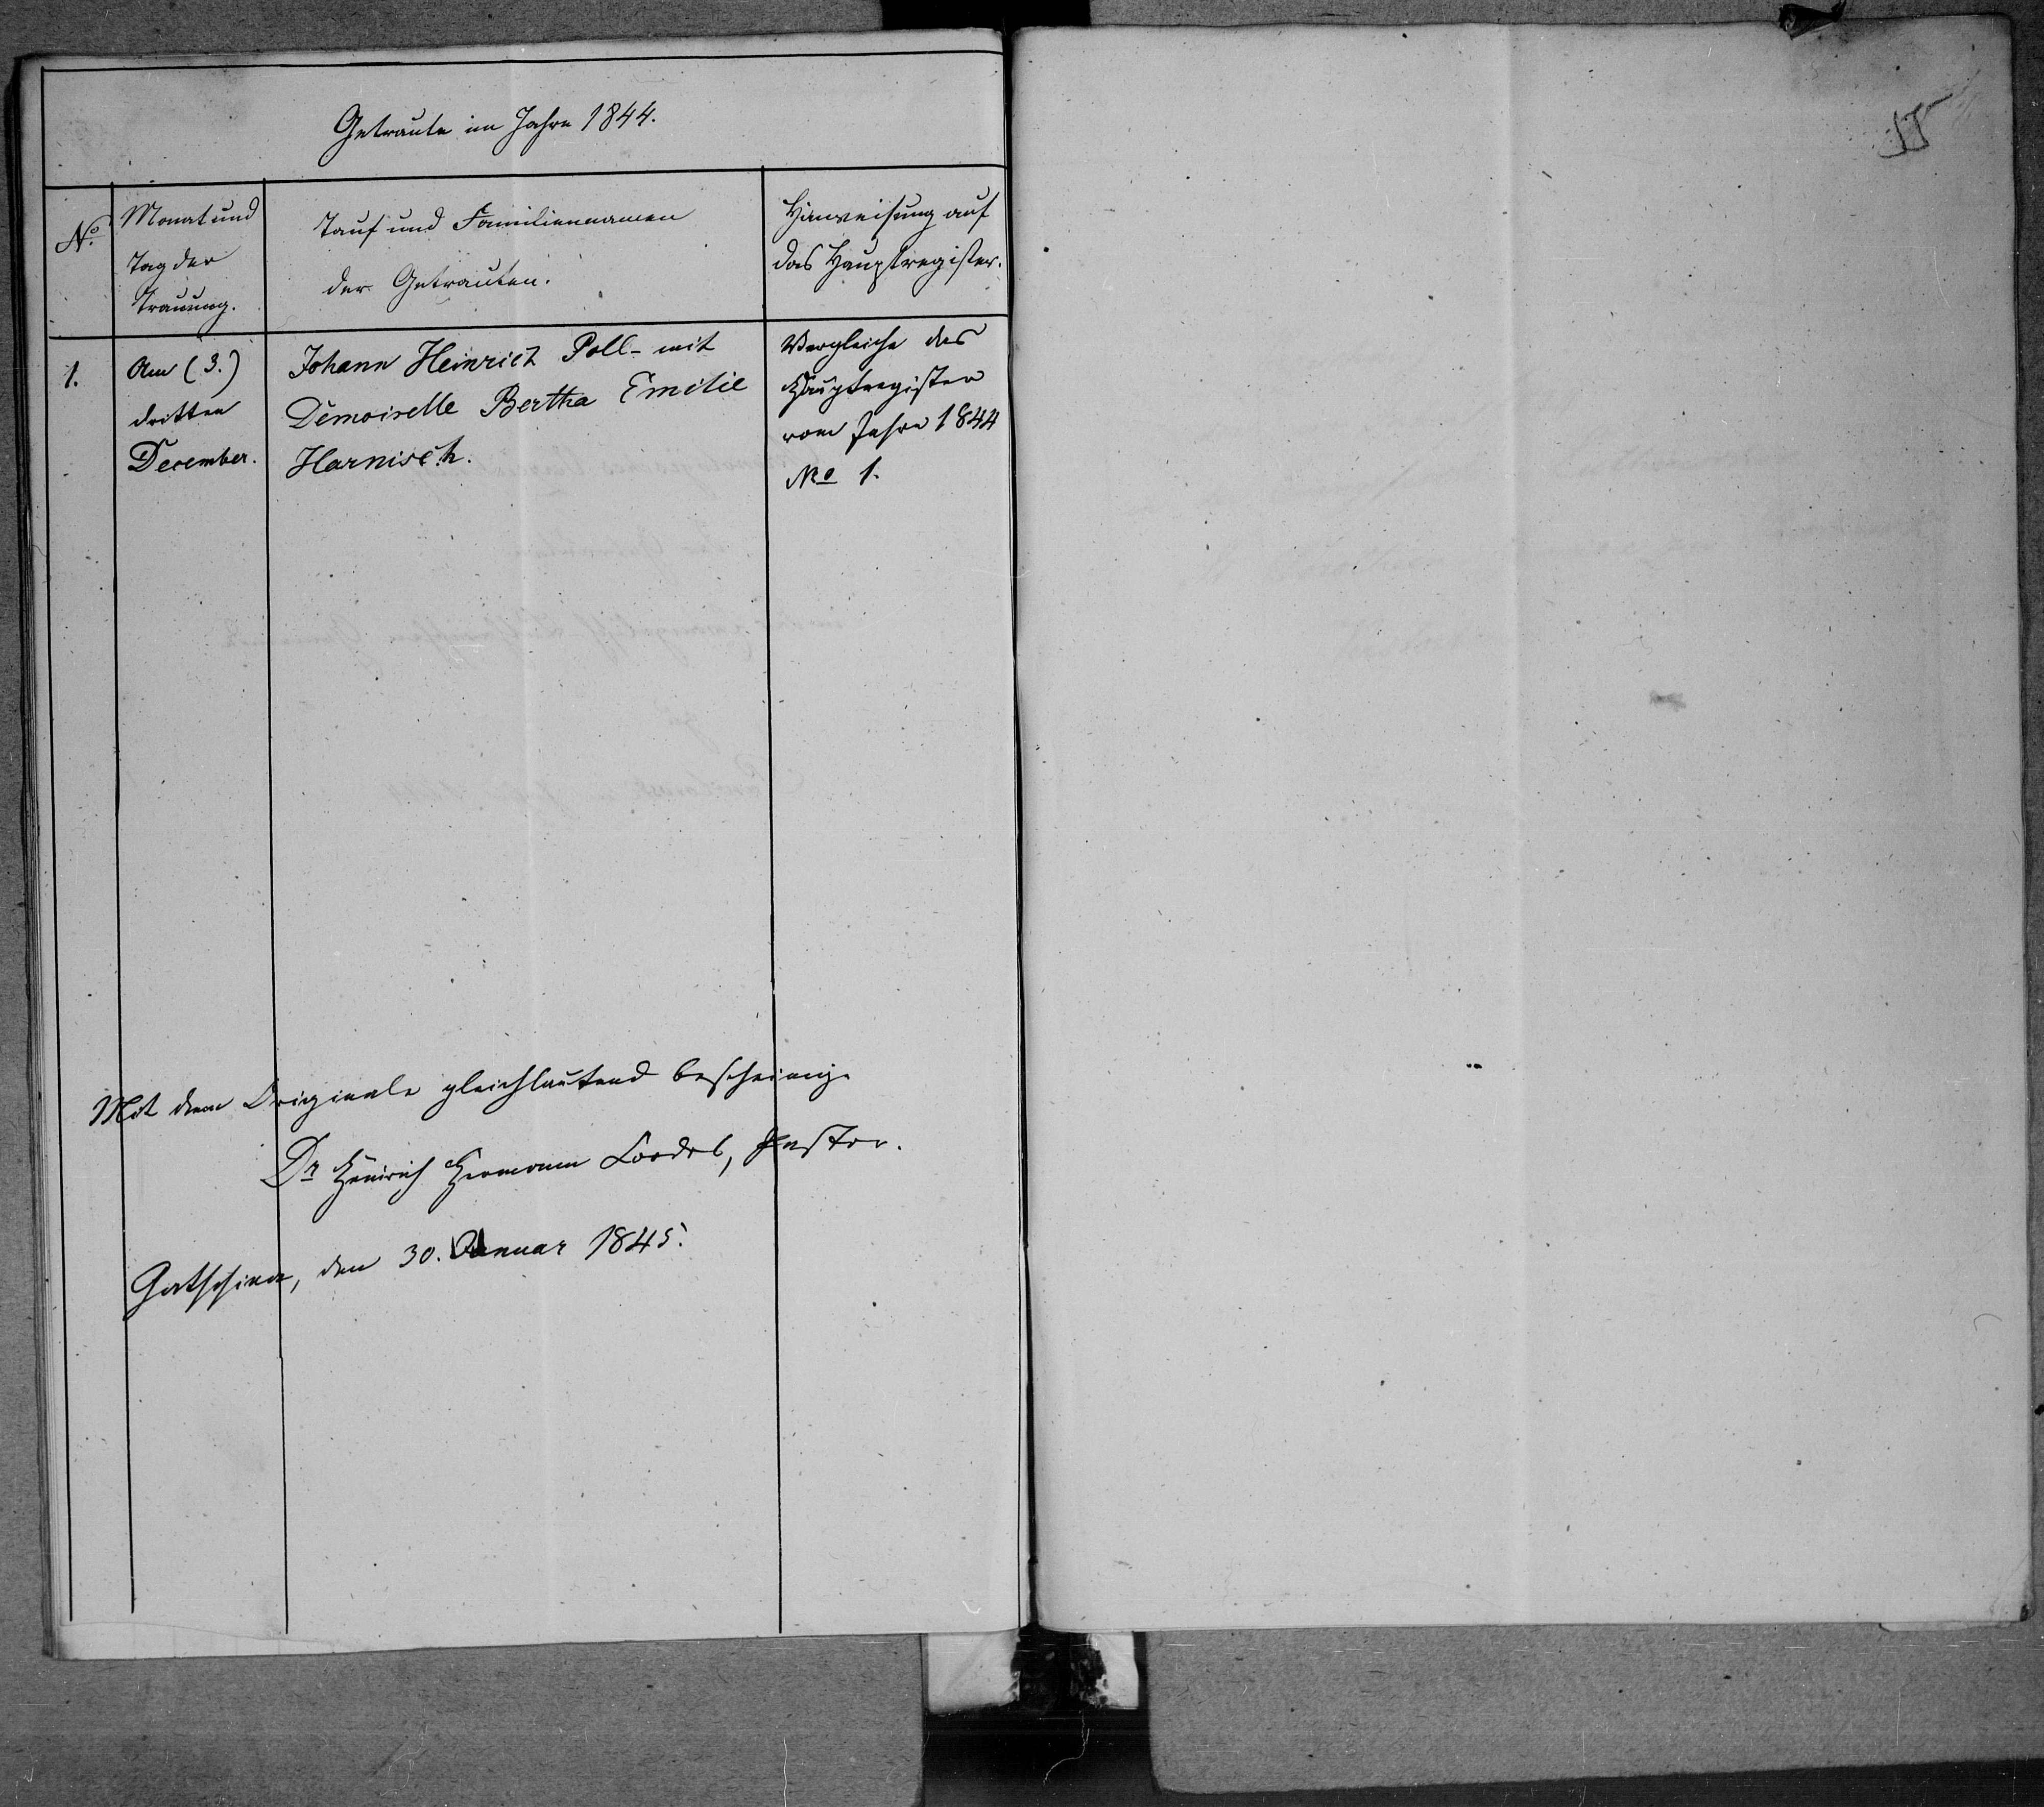 Getraute im Jahre 1844.
No.
Monat und
Tag der
Trauung.
Tauf und Familiennamen
der Getrauten.
Hinweisung auf
das Hauptregister.
1.
Am (3.)
dritten
December.
Johann Heinrich Poll mit
Demoiselle Bertha Emilie
Harnisch.
Vergleiche das
Hauptregister
vom Jahre 1844
No 1.
Mit dem Originale gleichlautend bescheinigt
Dr Heinrich Hermann Cordes, Pastor.
Gatschina, den 30. Januar 1845.